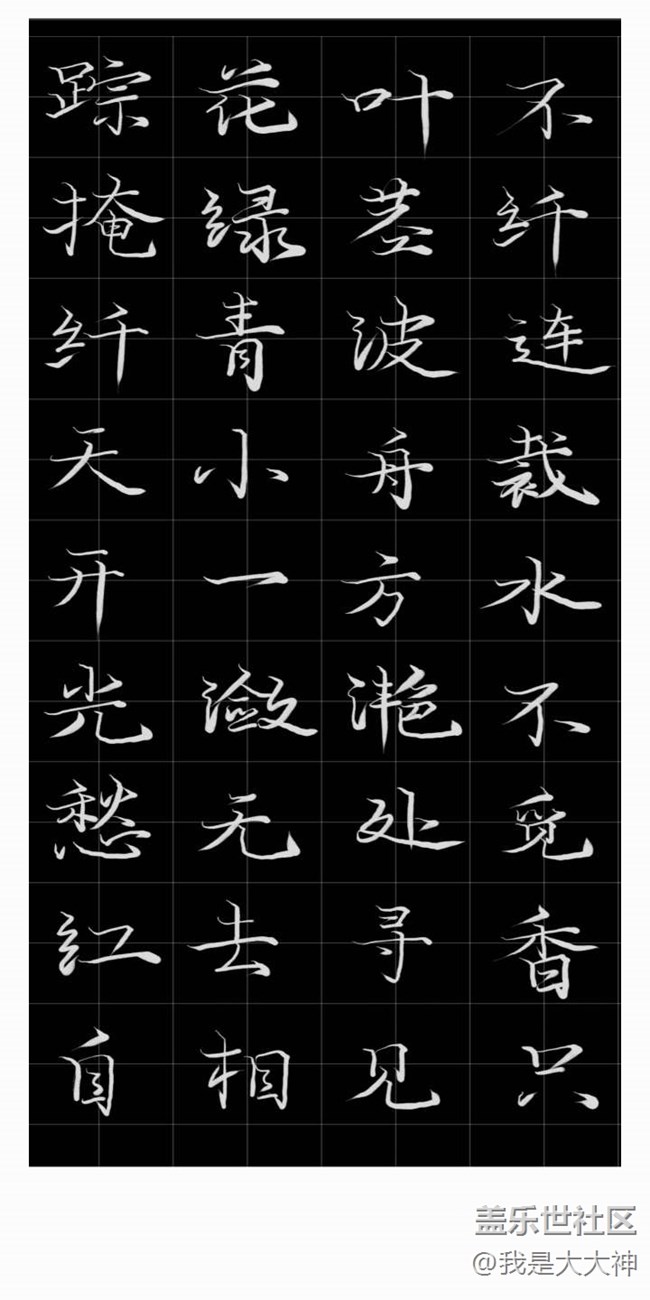 踪花叶不
掩绿茎纤
纤青波连
天小舟裁
开一方水
光潋滟不
愁无处觅
红去寻香
自相见只
盖乐世社区
@我是大大神